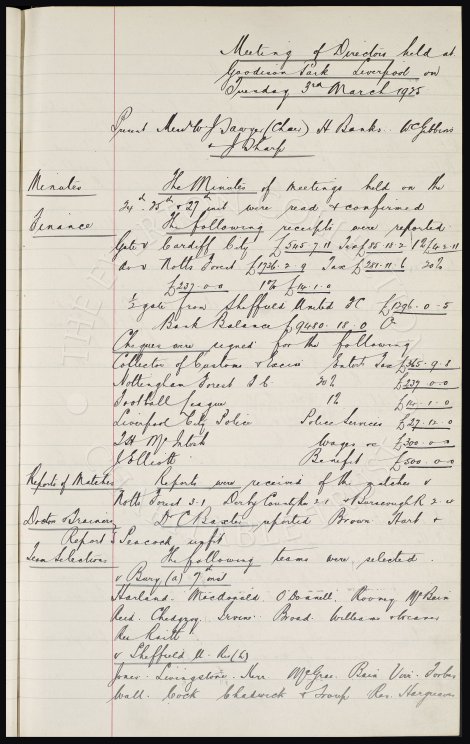 Meeting of Directors held at
Goodison Park Liverpool on
Tuesday 3rd March 1925
Present Messrs W J Sawyer (Chair) H Banks. W C Gibbins
& J Sharp
Minutes
The Minutes of meetings held on the
24th 25th & 27th inst were read & confirmed
Finance
The following receipts were reported
Gate v Cardiff City £545-7-11 Tax 1%
do v Notts Forest £1736-2-9 Tax £281-11-6 20%
£237-0-0 1% £14-1-0
½ gate from Sheffield United FC £1296-0-5
Bank Balance £9480-18-0
Cheques were signed for the following
Collector of Customs & Excise Entert Tax £365-9-8
Nottingham Forest F C 20% £237-0-0
Football League 1% £14-1-0
Liverpool City Police Police Services £27-12-0
McIntosh Wages £300-0-0
J Elliott Benefit £500-0-0
Reports of Matches
Reports were received of the matches v
Notts Forest 3-1 Derby County 2-1 & Burscough R 2-
Doctor & Trainers
Report
Dr C Baxter reported Brown Hart &
Peacock unfit
Team Selections
The following teams were selected
v Bury (a) 7th inst
Harland. Macdonald O'Donnell. Rooney McBain
Reid. Chedgzoy. Irvine. Broad. Williams
Res Raitt
v Sheffield U. Res (h)
Jones. Livingstone. Kerr McGrae. Bain Virr. Forbes
Wall. Cock Chadwick & Troup Res. Hargreaves